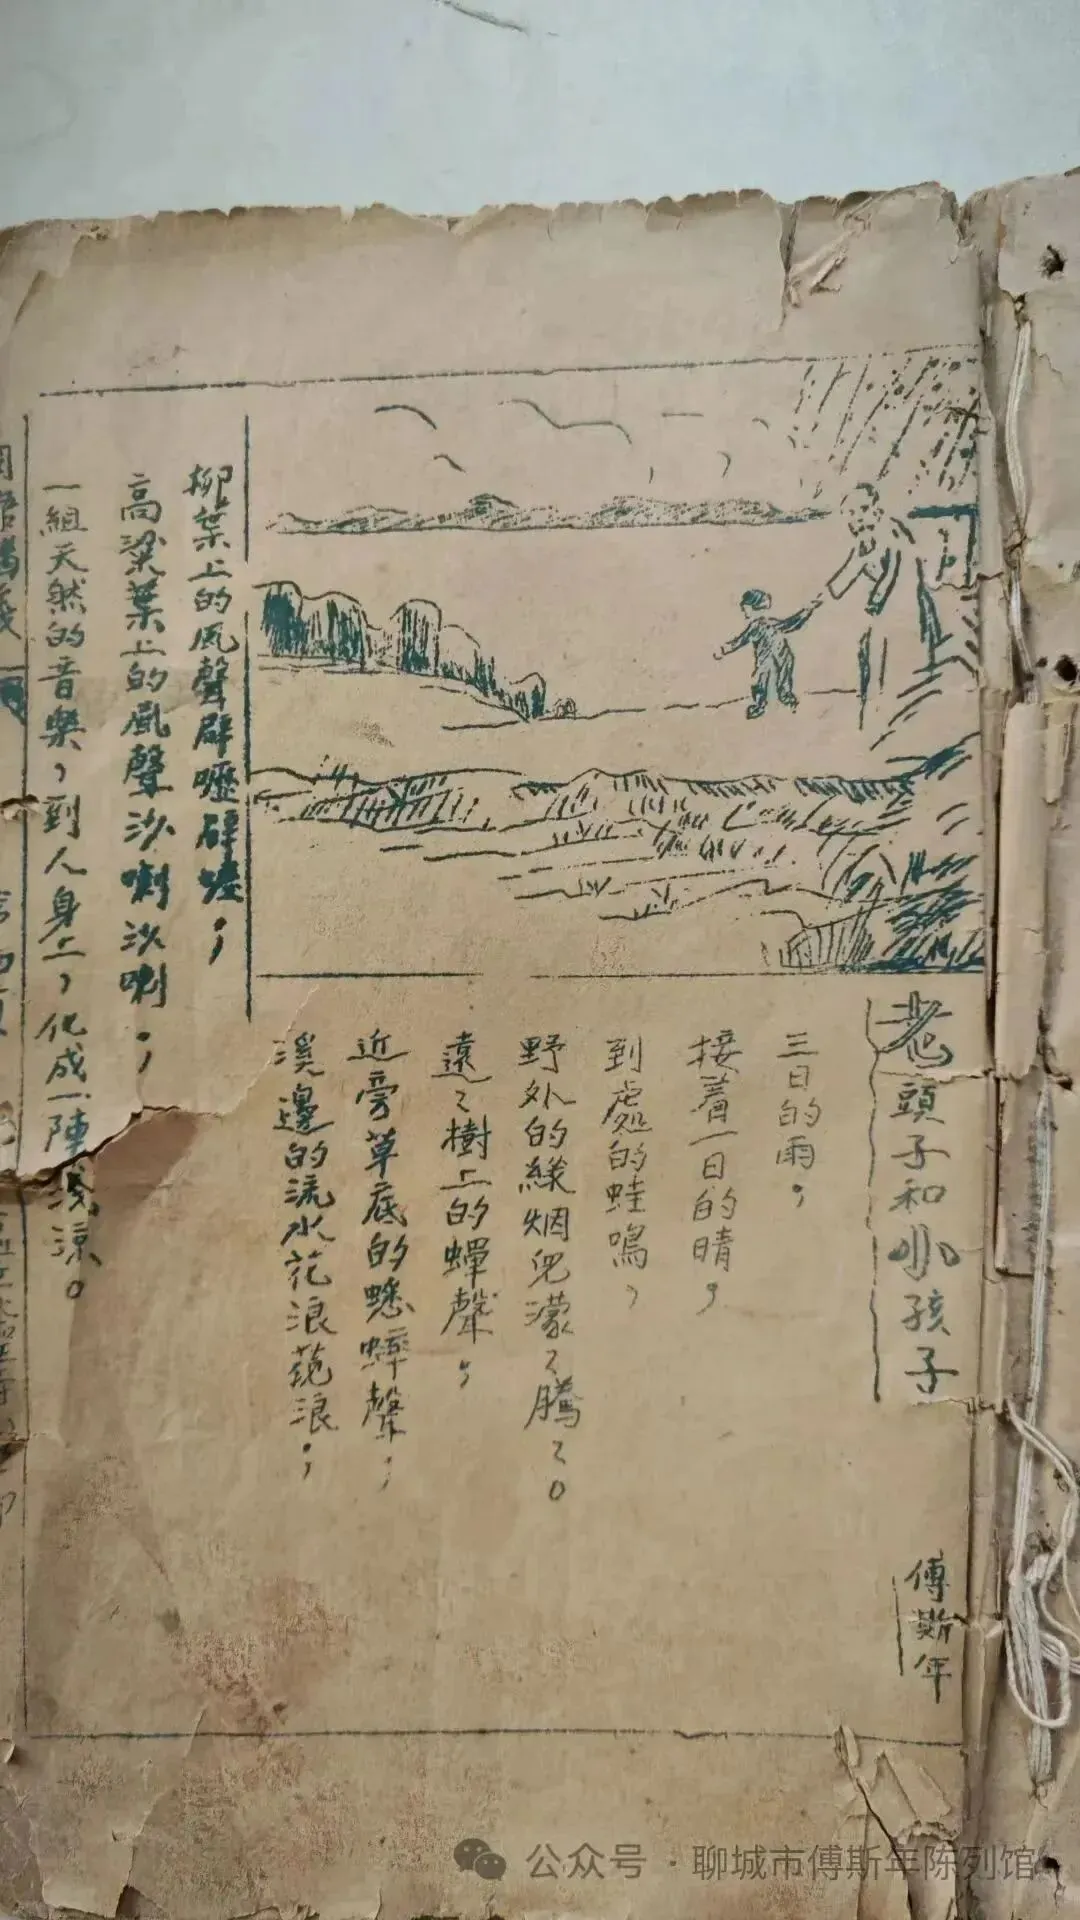 老頭子和小孩子
傅斯年
三日的雨，
接着一日的晴，
到處的蛙鳴，
野外的綠烟兒濛々騰々。
遠々樹上的蟬聲；
近旁草底的蟋蟀聲；
溪邊的流水花浪花浪；
柳葉上的風聲辟嚦辟嚦；
高粱葉上的風聲沙喇沙喇；
一組天然的音樂，到人身上，化成一陣淺涼。
公众号·聊城市傅斯年陈列馆